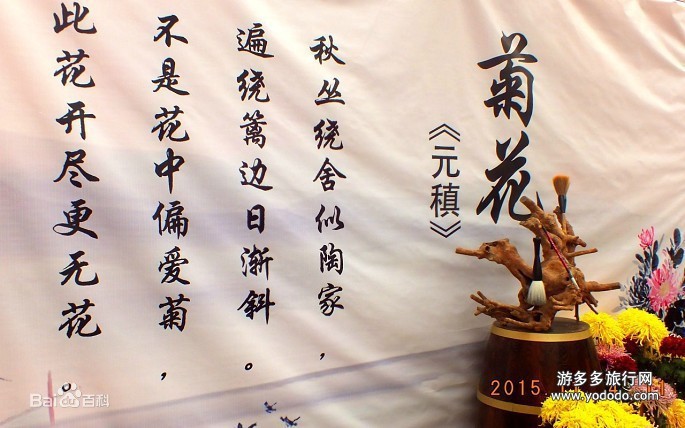 菊花
《元稹》
秋丛绕舍似陶家，
遍绕篱边日渐斜。
不是花中偏爱菊，
此花开尽更无花。
Baidu百科
游多多旅行网
www.yododo.com
2015.